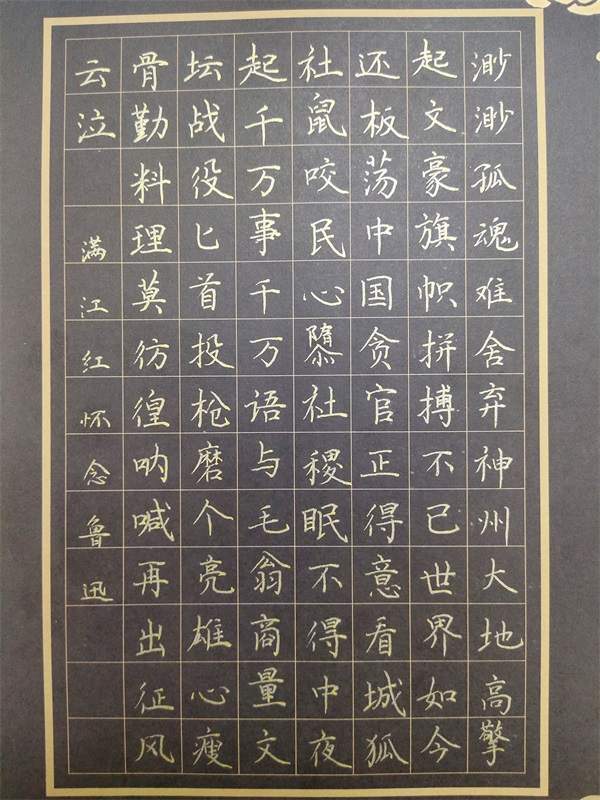 渺渺孤魂难舍弃神州大地高擎
起文豪旗帜拼搏不已世界如今
还板荡中国贪官正得意看城狐
社鼠咬民心隳社稷眠不得中夜
起千万事千万语与毛翁商量文
坛战役匕首投枪磨个亮雄心瘦
骨勤料理莫彷徨呐喊再出征风
云泣 满江红怀念鲁迅